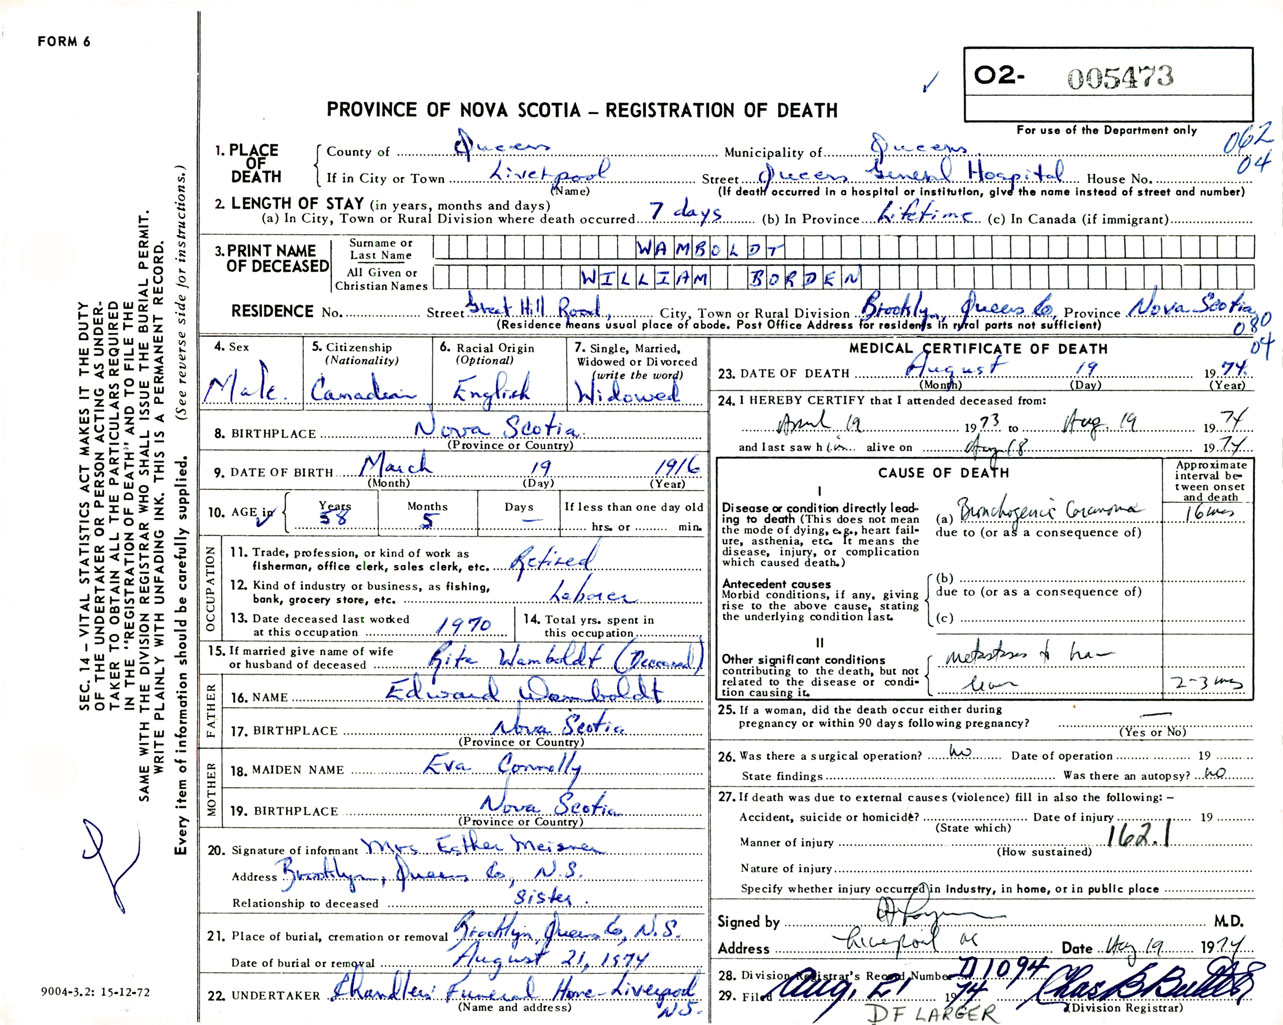 FORM 6
O2- 005473
PROVINCE OF NOVA SCOTIA – REGISTRATION OF DEATH
For use of the Department only
062
04
1. PLACE OF DEATH
County of Queens Municipality of Queens
If in City or Town Liverpool Street Queens General Hospital House No.
(Name) (If death occurred in a hospital or institution, give the name instead of street and number)
2. LENGTH OF STAY (in years, months and days)
(a) In City, Town or Rural Division where death occurred 7 days (b) In Province Lifetime (c) In Canada (if immigrant)
3. PRINT NAME OF DECEASED
Surname or Last Name WAMBOLDT
All Given or Christian Names WILLIAM BORDEN
RESIDENCE No. Street Hill Road, City, Town or Rural Division Brooklyn, Queens Co, Province Nova Scotia
(Residence means usual place of abode. Post Office Address for residents in rural parts not sufficient)
080
04
4. Sex
Male.
5. Citizenship
(Nationality)
Canadian
6. Racial Origin
(Optional)
English
7. Single, Married,
Widowed or Divorced
(write the word)
Widowed
8. BIRTHPLACE Nova Scotia
(Province or Country)
9. DATE OF BIRTH March 19 1916
(Month) (Day) (Year)
10. AGE in Years Months Days If less than one day old
58 5 — hrs. or min.
OCCUPATION
11. Trade, profession, or kind of work as
fisherman, office clerk, sales clerk, etc. Retired
12. Kind of industry or business, as fishing,
bank, grocery store, etc. Laborer
13. Date deceased last worked
at this occupation 1970
14. Total yrs. spent in
this occupation
15. If married give name of wife
or husband of deceased Rita Wamboldt (Deceased)
FATHER
16. NAME Edward Wamboldt
17. BIRTHPLACE Nova Scotia
(Province or Country)
MOTHER
18. MAIDEN NAME Eva Connolly
19. BIRTHPLACE Nova Scotia
(Province or Country)
20. Signature of informant Mrs Esther Meisner
Address Brooklyn, Queens Co, N.S.
Relationship to deceased Sister.
21. Place of burial, cremation or removal Brooklyn, Queens Co, N.S.
Date of burial or removal August 21, 1974
22. UNDERTAKER Chandlers' Funeral Home - Liverpool
(Name and address) N.S.
MEDICAL CERTIFICATE OF DEATH
23. DATE OF DEATH August 19 1974.
(Month) (Day) (Year)
24. I HEREBY CERTIFY that I attended deceased from:
April 19 1973 to Aug. 19 1974
and last saw him alive on Aug 18 1974
CAUSE OF DEATH
Approximate
interval be-
tween onset
and death
I
Disease or condition directly lead-
ing to death (This does not mean
the mode of dying, e.g., heart fail-
ure, asthenia, etc. It means the
disease, injury, or complication
which caused death.)
(a) Bronchogenic Carcinoma 16 mos
due to (or as a consequence of)
Antecedent causes
Morbid conditions, if any, giving
rise to the above cause, stating
the underlying condition last.
(b)
due to (or as a consequence of)
(c)
II
Other significant conditions
contributing to the death, but not
related to the disease or condi-
tion causing it.
metastases to
2-3 mos
25. If a woman, did the death occur either during
pregnancy or within 90 days following pregnancy? —
(Yes or No)
26. Was there a surgical operation? no Date of operation 19
State findings Was there an autopsy? no
27. If death was due to external causes (violence) fill in also the following: –
Accident, suicide or homicide? Date of injury 19
(State which)
Manner of injury 162.1
(How sustained)
Nature of injury
Specify whether injury occurred in industry, in home, or in public place
Signed by M.D.
Address Liverpool NS Date Aug 19 1974
28. Division Registrar's Record Number D1094
29. Filed Aug. 21 1974 Chas B Butler
(Division Registrar)
DF LARGER
SEC. 14 – VITAL STATISTICS ACT MAKES IT THE DUTY
OF THE UNDERTAKER OR PERSON ACTING AS UNDER-
TAKER TO OBTAIN ALL THE PARTICULARS REQUIRED
IN THE "REGISTRATION OF DEATH" AND TO FILE THE
SAME WITH THE DIVISION REGISTRAR WHO SHALL ISSUE THE BURIAL PERMIT.
WRITE PLAINLY WITH UNFADING INK. THIS IS A PERMANENT RECORD.
Every item of information should be carefully supplied. (See reverse side for instructions.)
9004-3.2: 15-12-72